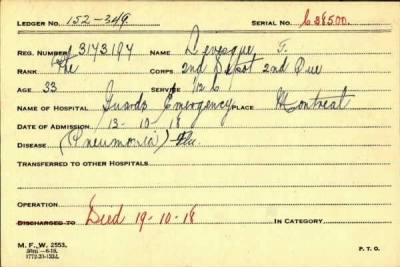 LEDGER No. 152-349 SERIAL No. C38500.
REG. NUMBER 3173197 NAME Levesque, T.
RANK Pte CORPS 2nd Depot 2nd Que
AGE 33 SERVICE 1/12 C
NAME OF HOSPITAL Guards Emergency PLACE Montreal
DATE OF ADMISSION 13-10-18
DISEASE (Pneumonia) Flu.
TRANSFERRED TO OTHER HOSPITALS
OPERATION
DISCHARGED TO Died 19-10-18 IN CATEGORY
M. F. W. 2553.
1772-39-1334.
P. T. O.